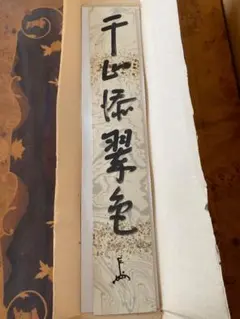 千山添翠色